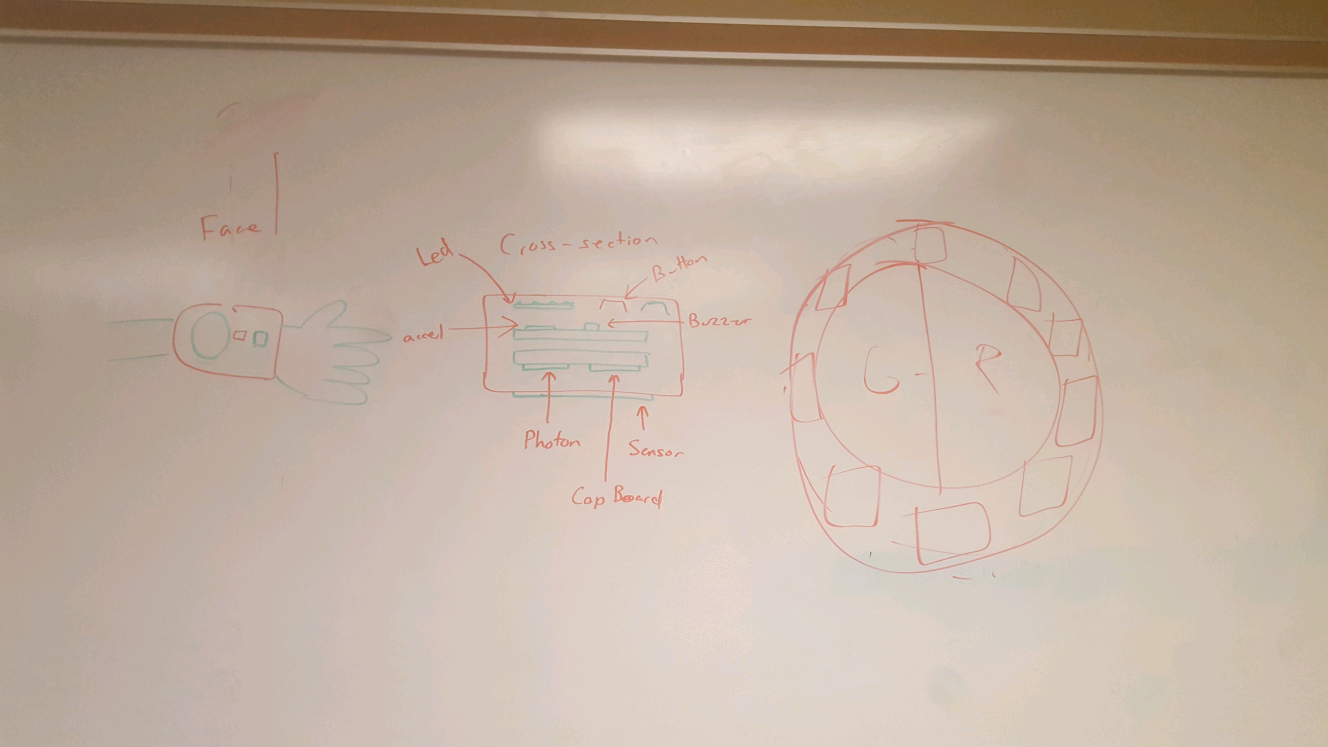 Face
Cross-section
Led
Button
accel
Buzzer
Photon
Sensor
Cap Board
G - R